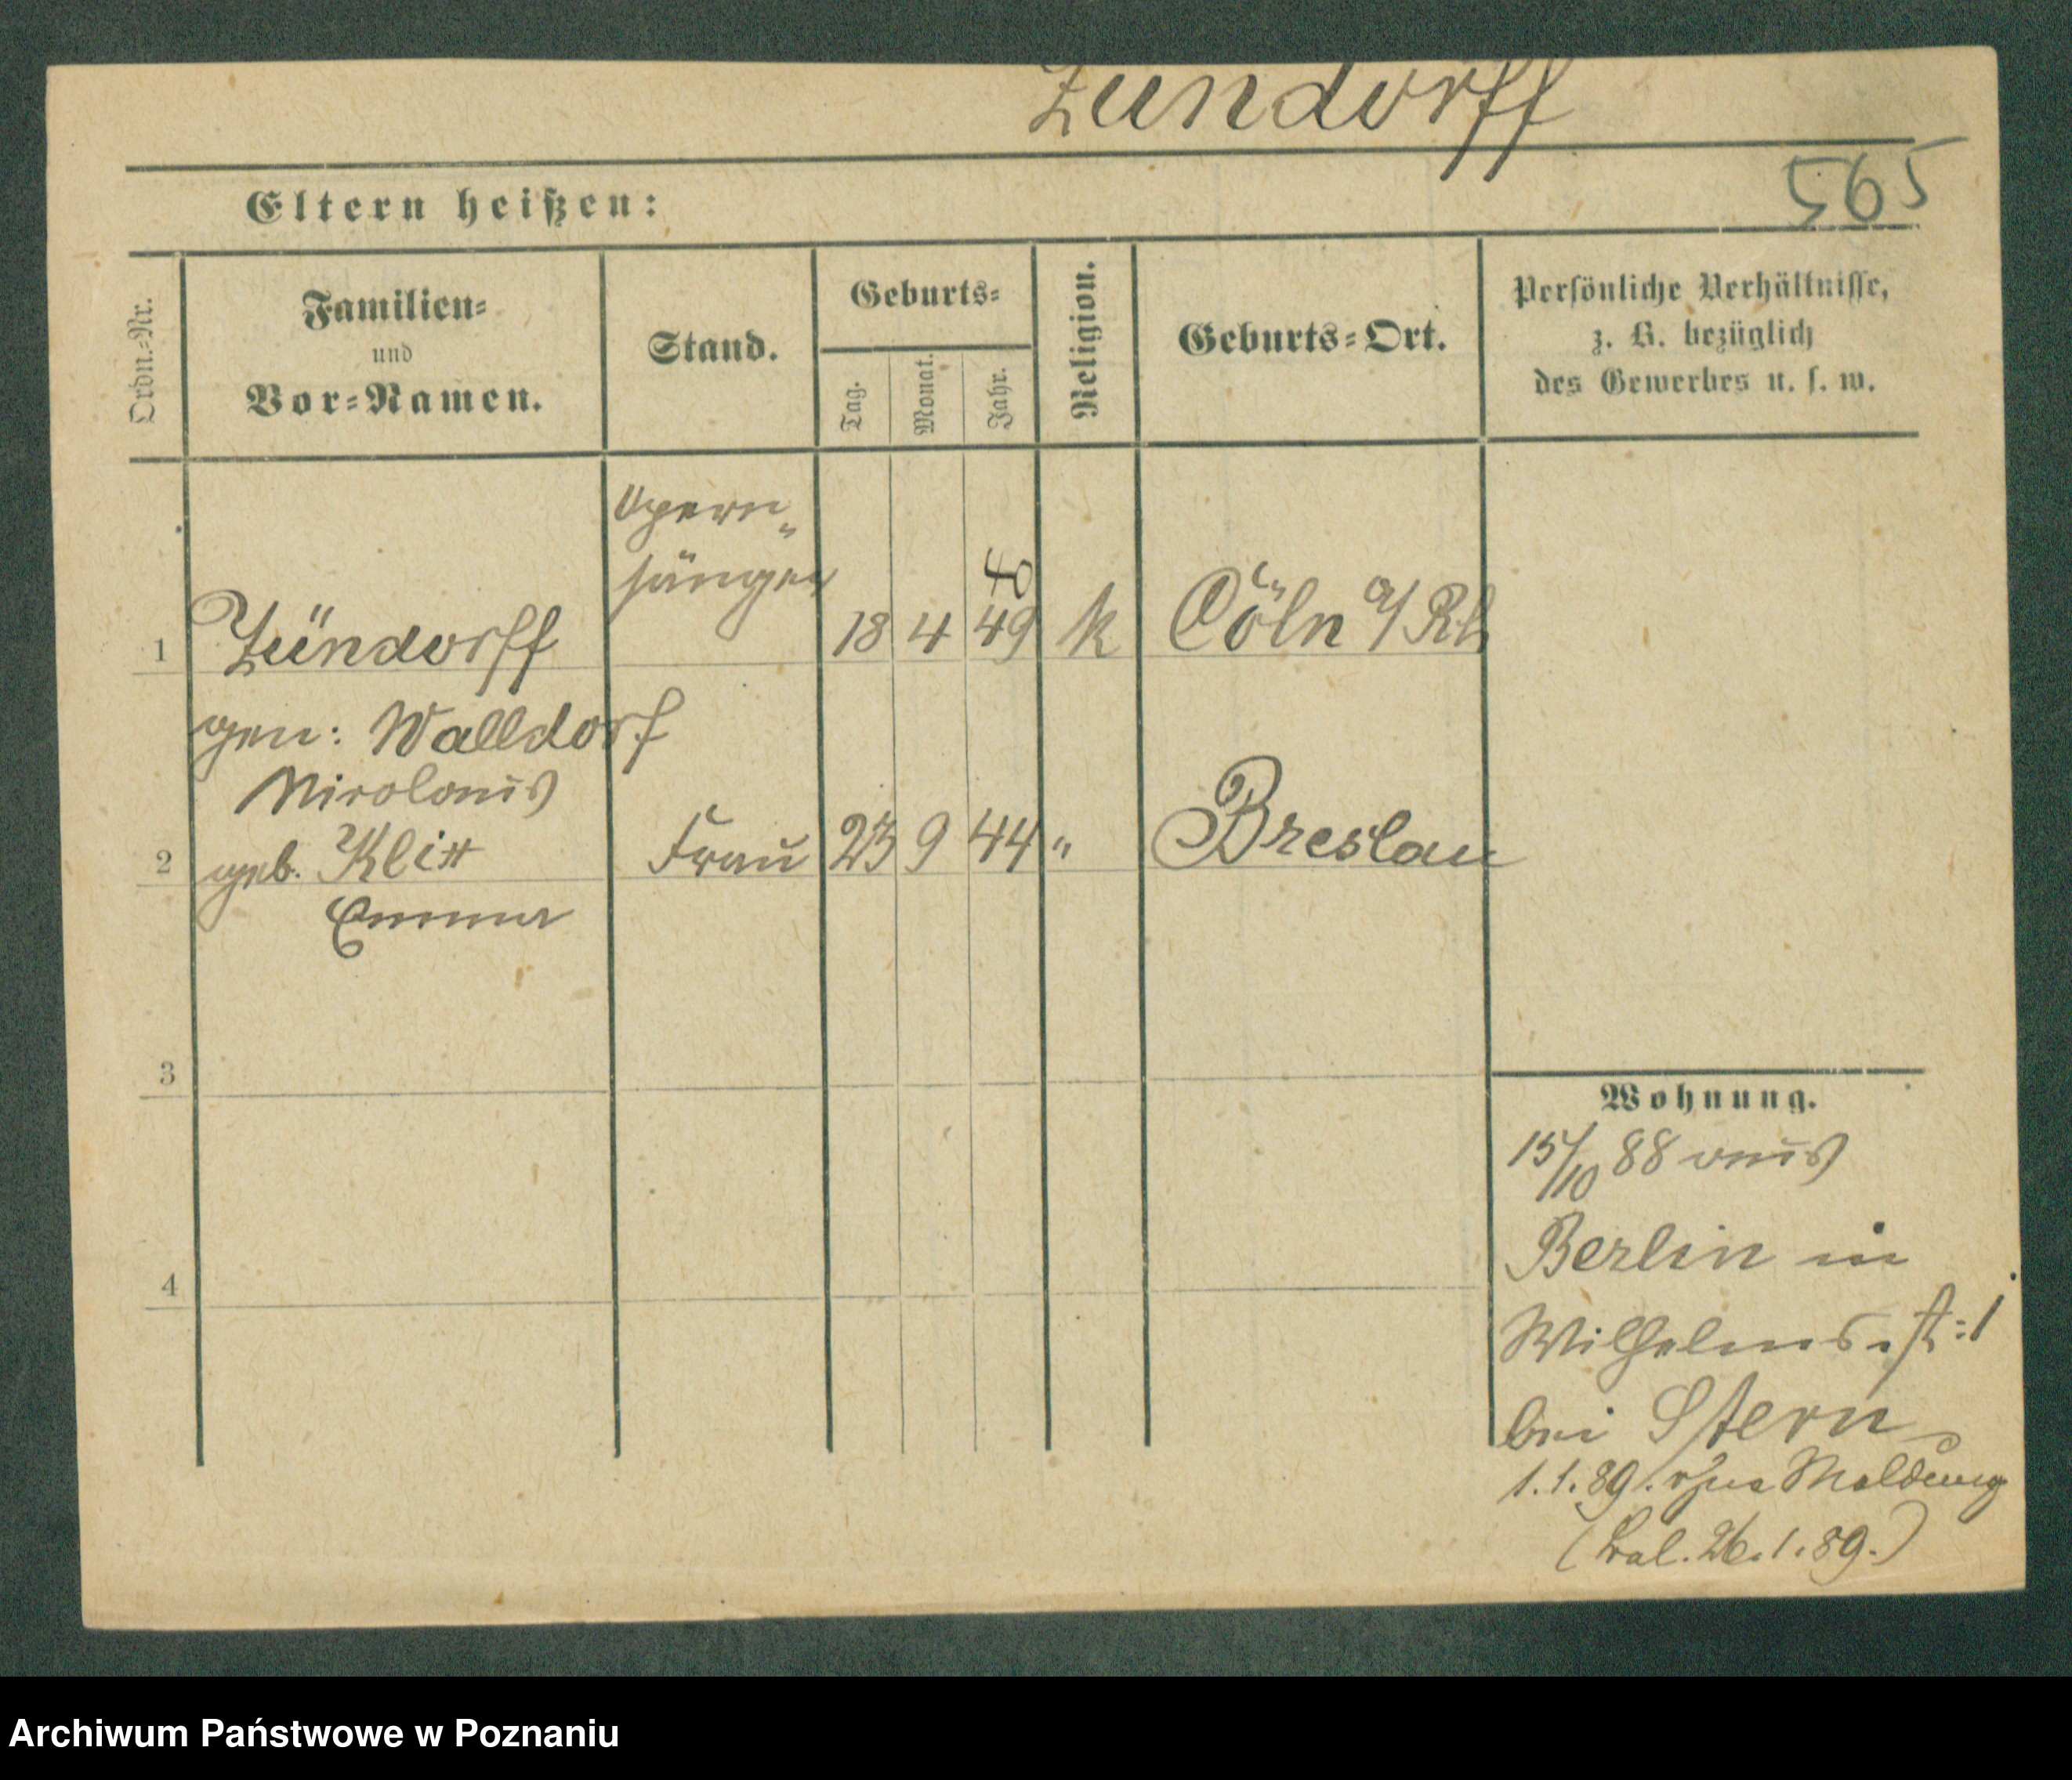 Zündorff
565
Eltern heißen:
Ordn.=Nr.
Familien=
und
Vor=Namen.
Stand.
Geburts=
Tag.
Monat.
Jahr.
Religion.
Geburts=Ort.
Persönliche Verhältnisse,
z. B. bezüglich
des Gewerbes u. s. w.
Opern„
sänger
1 Zündorff 18 4 49 k Cöln a/Rh
gen: Walldorf
Nicolaus
2 geb. Frau 23 9 44 „ Breslau
Emma
3
4
Wohnung.
15/10 88 aus
Berlin in
Wilhelms.st=1
bei Stern
1.1.89. ohne Meldung
26.1.89.)
Archiwum Państwowe w Poznaniu